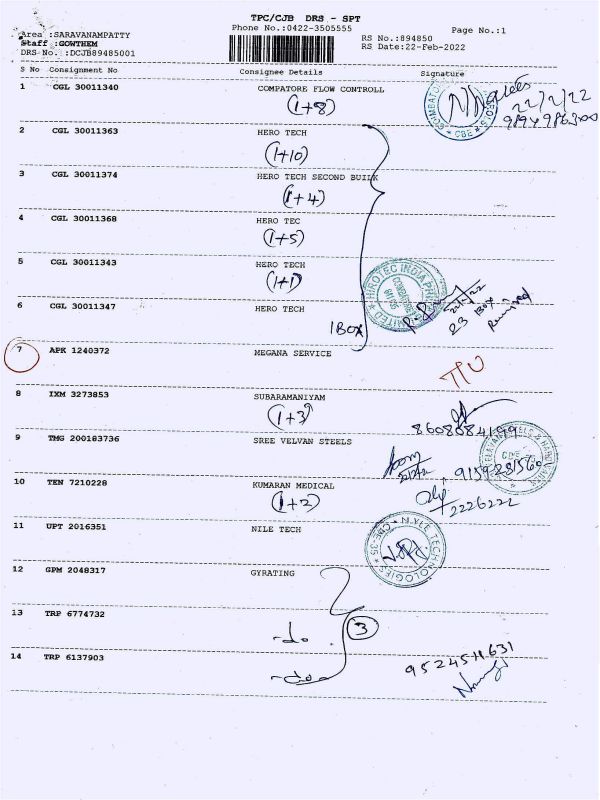 TPC/CJB DRS - SPT
Area :SARAVANAMPATTY Phone No.:0422-3505555 Page No.:1
Staff :GOWTHEM RS No.:894850
DRS No. :DCJB89485001 RS Date:22-Feb-2022
S No Consignment No Consignee Details Signature
1 CGL 30011340 COMPATORE FLOW CONTROLL
(1+8) 22/2/22
2 CGL 30011363 HERO TECH
(1+10)
3 CGL 30011374 HERO TECH SECOND BUILK
(1+4)
4 CGL 30011368 HERO TEC
(1+5)
5 CGL 30011343 HERO TECH
(1+1)
6 CGL 30011347 HERO TECH
1 BOX 23 Box
7 APK 1240372 MEGANA SERVICE
8 IXM 3273853 SUBARAMANIYAM
(1+3)
9 TMG 200183736 SREE VELVAN STEELS
10 TEN 7210228 KUMARAN MEDICAL
(1+2)
11 UPT 2016351 NILE TECH
NYLE TECHNOLOGIES * CBE-35
12 GPM 2048317 GYRATING
13 TRP 6774732
-do 3
14 TRP 6137903
-do